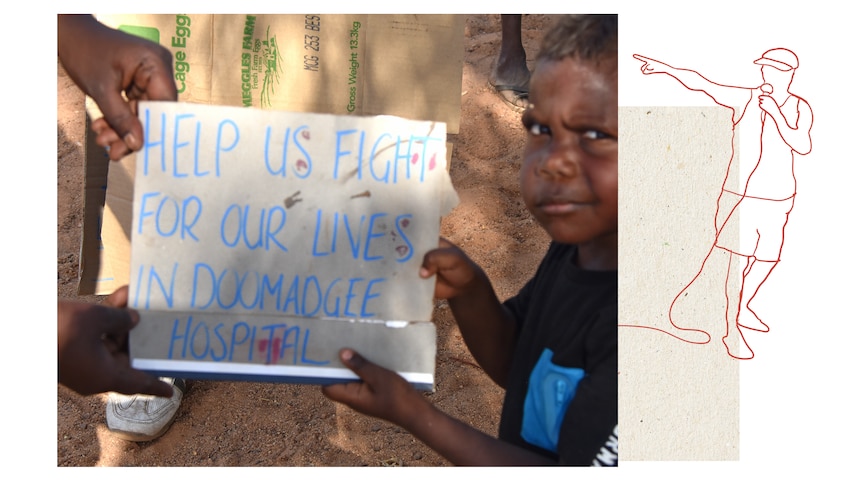 Cage Egg
MEGGLES FARM
Fresh Farm Eggs
MCG 253 BES
Gross Weight 13.3kg
HELP US FIGHT
FOR OUR LIVES
IN DOOMADGEE
HOSPITAL